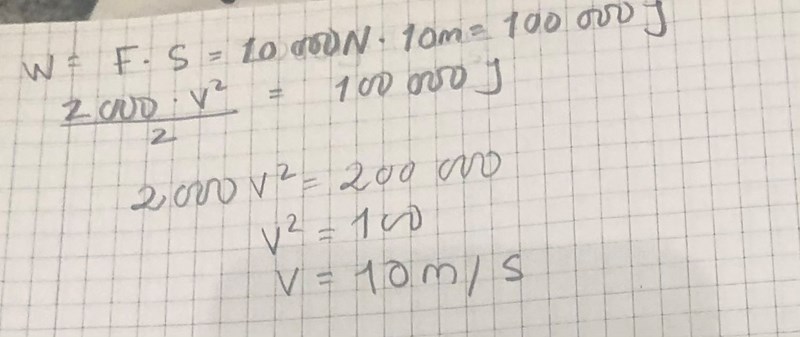 W = F · S = 10 000N · 10m = 100 000 J
2 000 · V² / 2 = 100 000 J
2000 V² = 200 000
V² = 100
V = 10 m/s